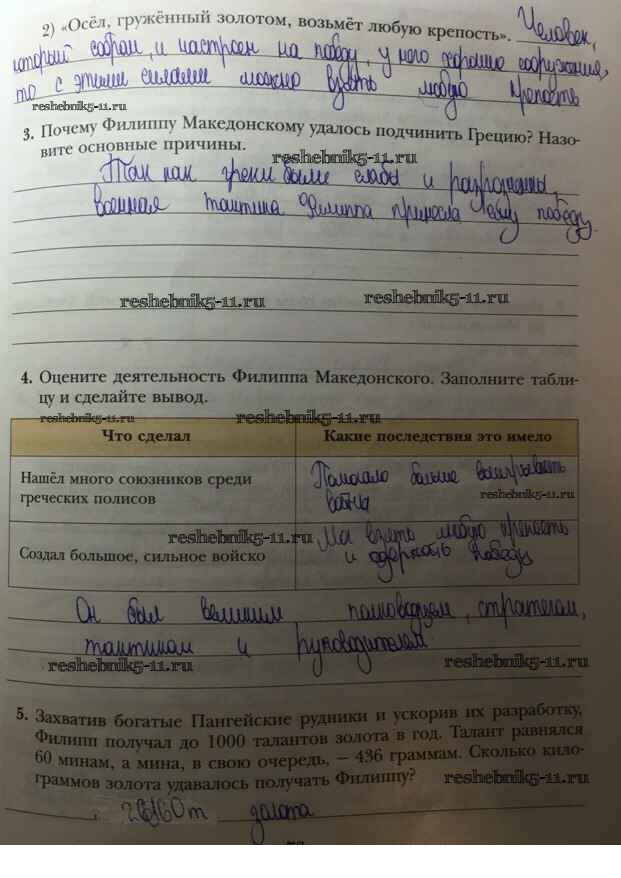 2) «Осёл, гружённый золотом, возьмёт любую крепость». Человек,
который собран, и настроен на победу, у него хорошие сооружения,
то с этими силами можно взять любую крепость
reshebnik5-11.ru
3. Почему Филиппу Македонскому удалось подчинить Грецию? Назо-
вите основные причины.
reshebnik5-11.ru
Так как греки были слабы и разрознены,
военная тактика Филиппа принесла ему победу.
reshebnik5-11.ru reshebnik5-11.ru
4. Оцените деятельность Филиппа Македонского. Заполните табли-
цу и сделайте вывод.
reshebnik5-11.ru reshebnik5-11.ru
Что сделал Какие последствия это имело
Нашёл много союзников среди
греческих полисов
Помогало больше выигрывать
войны
reshebnik5-11.ru
reshebnik5-11.ru
Создал большое, сильное войско
Мог взять любую крепость
и одержать победу
Он был великим полководцем, стратегом,
тактиком и руководителем.
reshebnik5-11.ru reshebnik5-11.ru
5. Захватив богатые Пангейские рудники и ускорив их разработку,
Филипп получал до 1000 талантов золота в год. Талант равнялся
60 минам, а мина, в свою очередь, – 436 граммам. Сколько кило-
граммов золота удавалось получать Филиппу?
reshebnik5-11.ru
золота